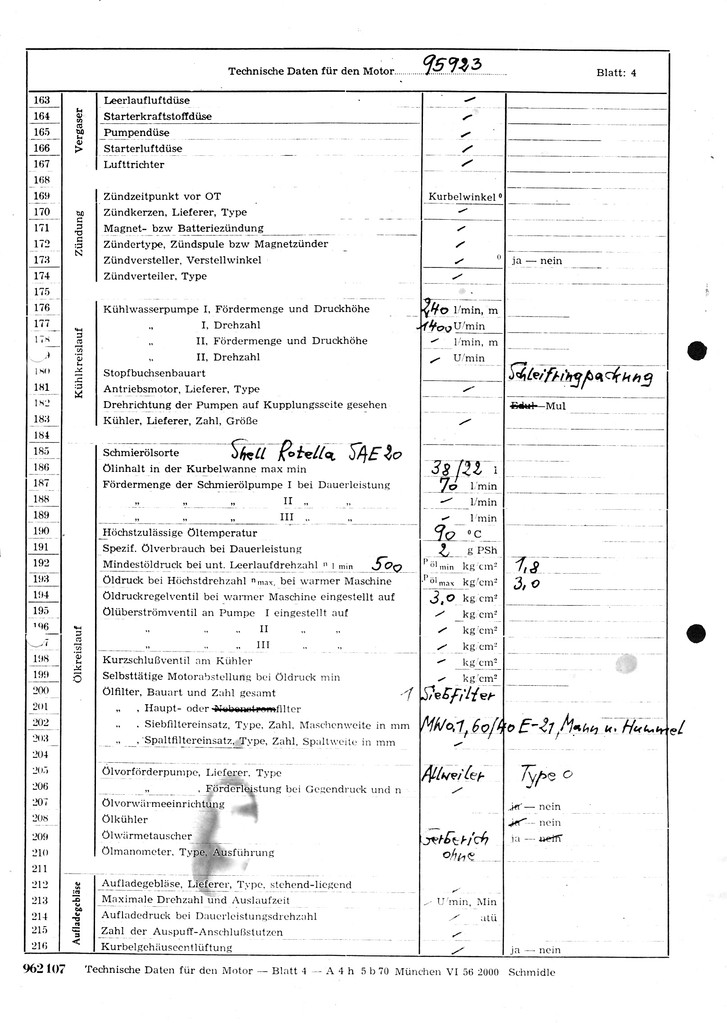 Technische Daten für den Motor 95923 Blatt: 4
Vergaser
163 Leerlaufluftdüse –
164 Starterkraftstoffdüse –
165 Pumpendüse –
166 Starterluftdüse –
167 Lufttrichter –
168
Zündung
169 Zündzeitpunkt vor OT Kurbelwinkel °
170 Zündkerzen, Lieferer, Type –
171 Magnet- bzw Batteriezündung –
172 Zündertype, Zündspule bzw Magnetzünder –
173 Zündversteller, Verstellwinkel – ° ja — nein
174 Zündverteiler, Type –
175
Kühlkreislauf
176 Kühlwasserpumpe I, Fördermenge und Druckhöhe 240 l/min, m
177 „ I, Drehzahl 1400 U/min
178 „ II, Fördermenge und Druckhöhe – l/min, m
„ II, Drehzahl – U/min
180 Stopfbuchsenbauart Schleifringpackung
181 Antriebsmotor, Lieferer, Type –
182 Drehrichtung der Pumpen auf Kupplungsseite gesehen Edul—Mul
183 Kühler, Lieferer, Zahl, Größe –
184
Ölkreislauf
185 Schmierölsorte Shell Rotella SAE 20
186 Ölinhalt in der Kurbelwanne max min 38/22 l
187 Fördermenge der Schmierölpumpe I bei Dauerleistung 70 l/min
188 „ „ „ II „ „ – l/min
189 „ „ „ III „ „ – l/min
190 Höchstzulässige Öltemperatur 90 °C
191 Spezif. Ölverbrauch bei Dauerleistung 2 g PSh
192 Mindestöldruck bei unt. Leerlaufdrehzahl n 1 min 500 P öl min kg/cm² 1,8
193 Öldruck bei Höchstdrehzahl n max. bei warmer Maschine P öl max kg/cm² 3,0
194 Öldruckregelventil bei warmer Maschine eingestellt auf 3,0 kg/cm²
195 Ölüberströmventil an Pumpe I eingestellt auf – kg/cm²
196 „ „ „ II „ „ – kg/cm²
7 „ „ „ III „ „ – kg/cm²
198 Kurzschlußventil am Kühler – kg/cm²
199 Selbsttätige Motorabstellung bei Öldruck min – kg/cm²
200 Ölfilter, Bauart und Zahl gesamt 1 Siebfilter
201 „ . Haupt- oder Nebenstromfilter
202 „ . Siebfiltereinsatz, Type, Zahl, Maschenweite in mm MW0.1, 60/40 E-21, Mann u. Hummel
203 „ . Spaltfiltereinsatz, Type, Zahl, Spaltweite in mm –
204
205 Ölvorförderpumpe, Lieferer, Type Allweiler Type 0
206 „ . Förderleistung bei Gegendruck und n –
207 Ölvorwärmeeinrichtung ja — nein
208 Ölkühler ja — nein
209 Ölwärmetauscher Gerberich ja — nein
210 Ölmanometer, Type, Ausführung ohne
211
Aufladegebläse
212 Aufladegebläse, Lieferer, Type, stehend-liegend –
213 Maximale Drehzahl und Auslaufzeit – U/min, Min
214 Aufladedruck bei Dauerleistungsdrehzahl – atü
215 Zahl der Auspuff-Anschlußstutzen –
216 Kurbelgehäuseentlüftung – ja — nein
962 107 Technische Daten für den Motor — Blatt 4 — A 4 h 5 b 70 München VI 56 2000 Schmidle